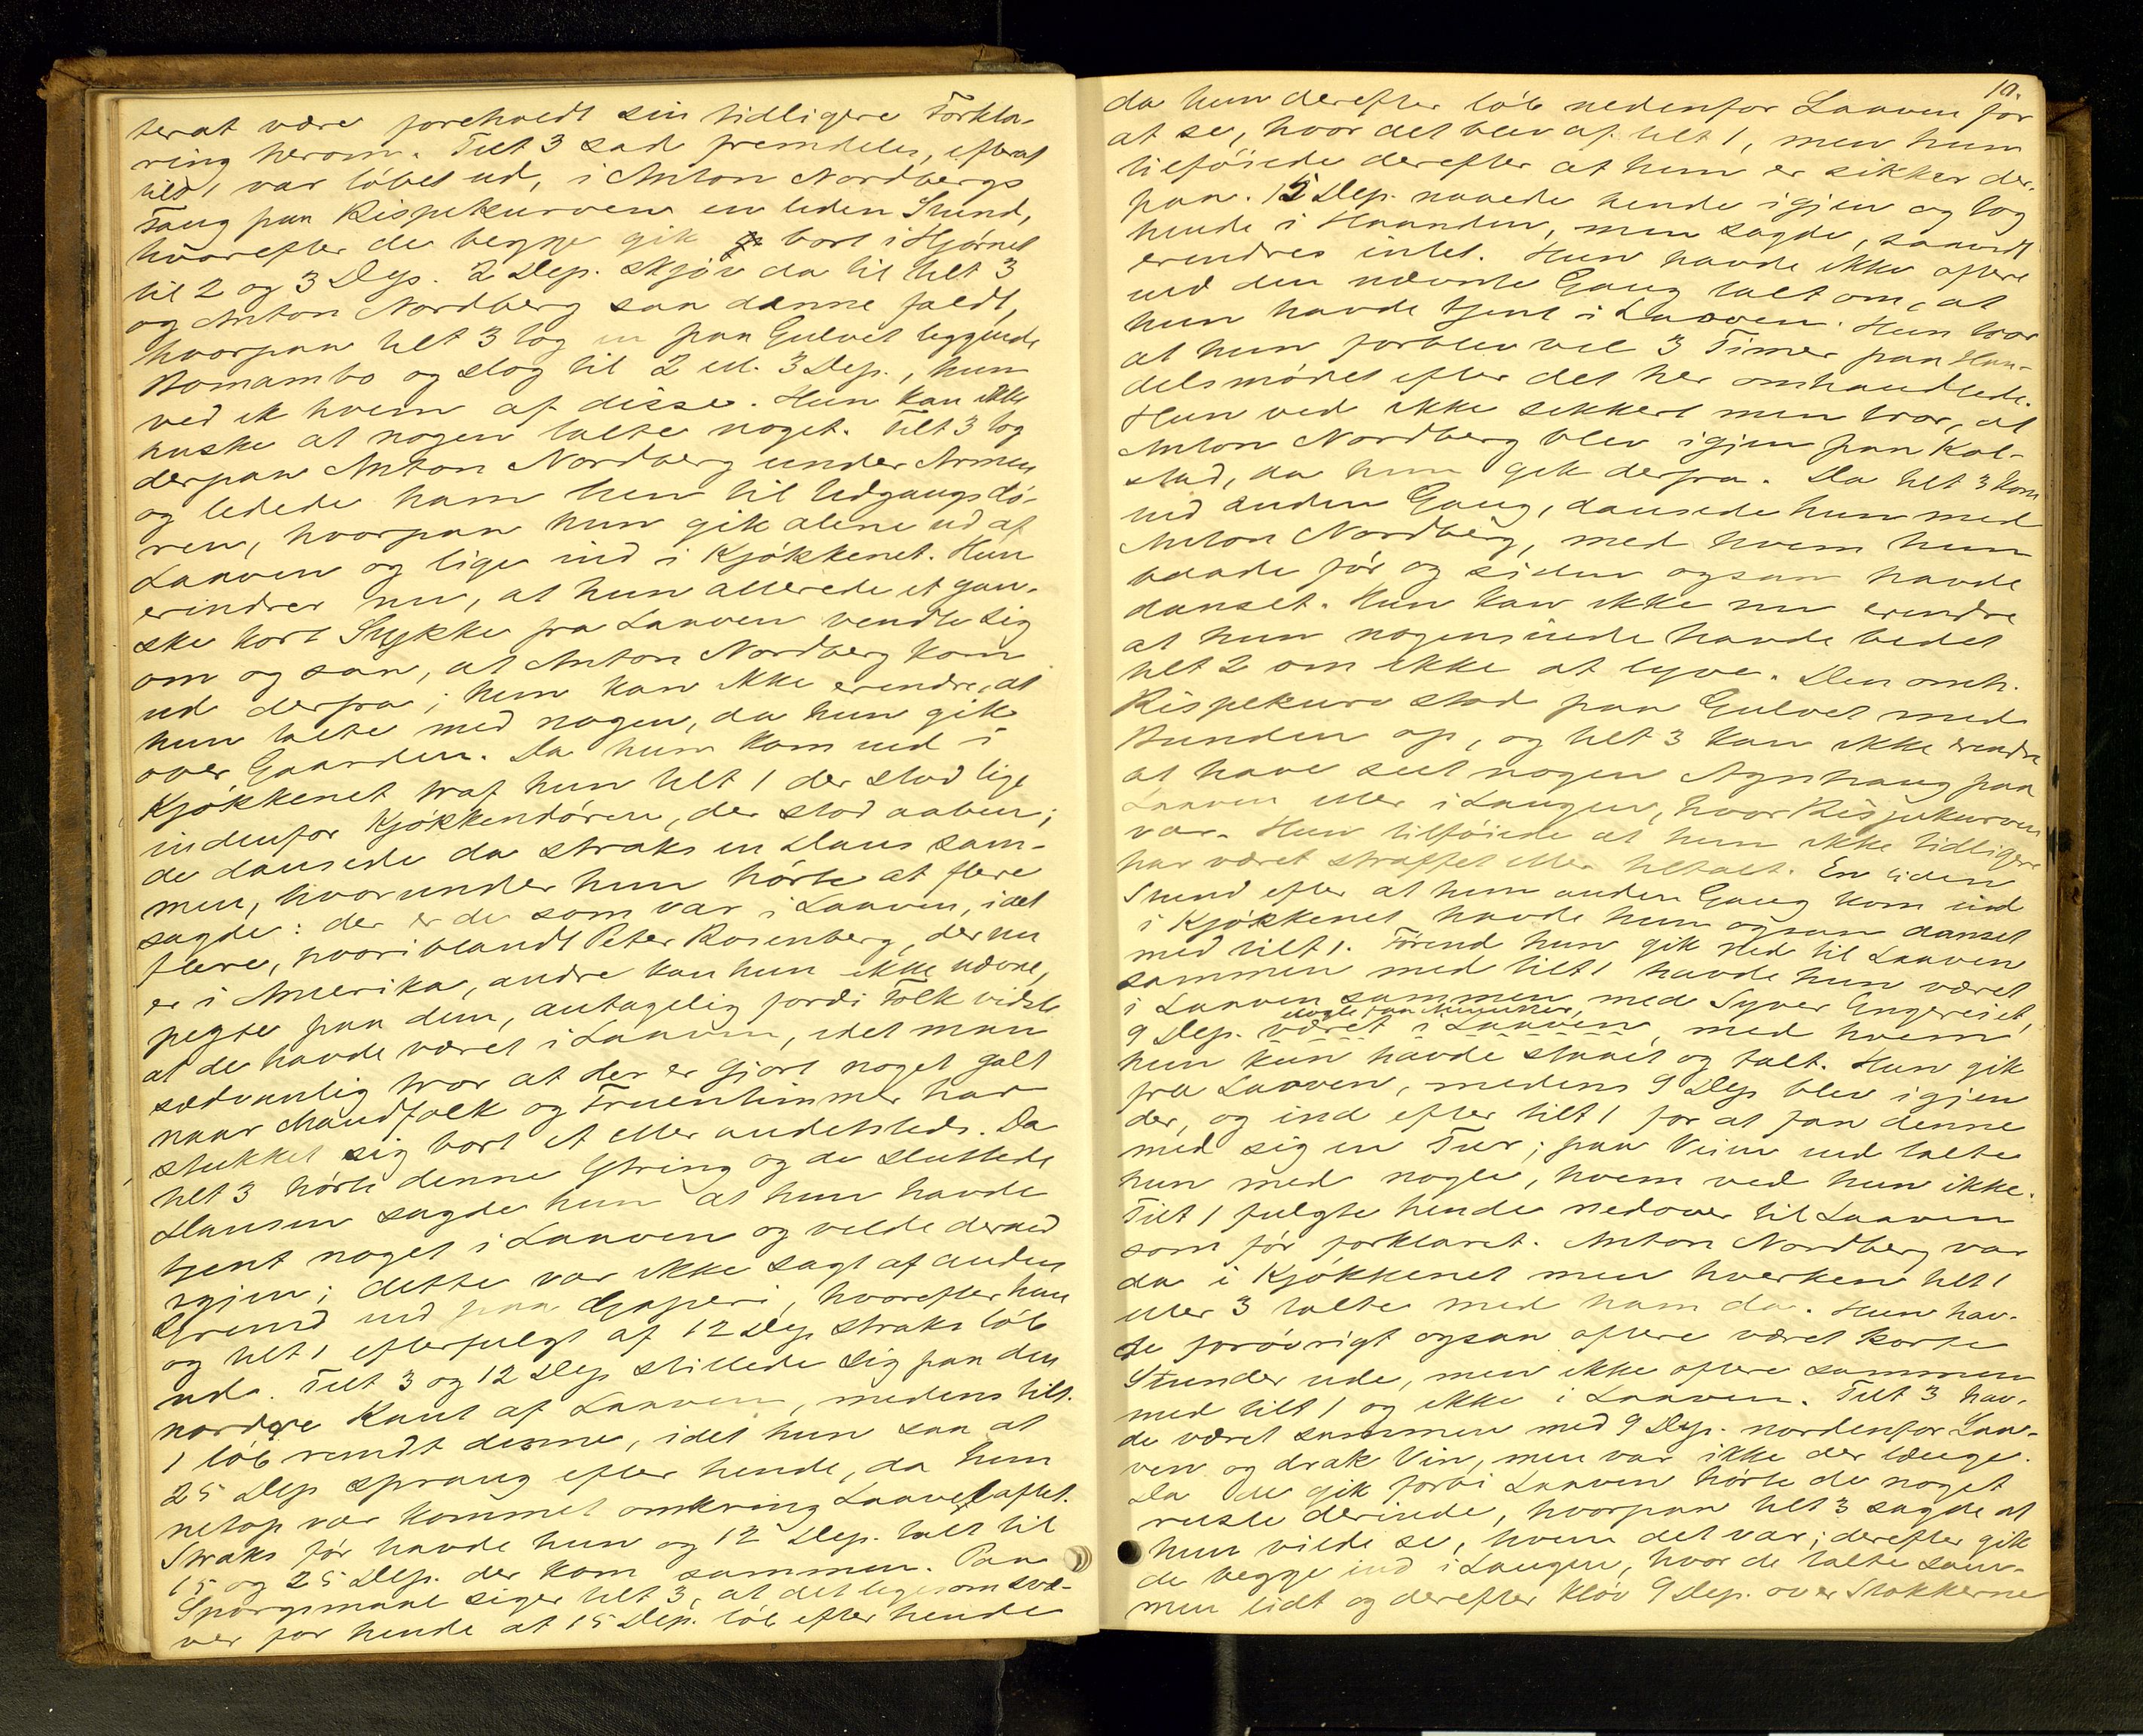 terat være foreholdt sin tidligere Forkla-
ring herom. Tilt 3 sad fremdeles, efterat
tilt 1 var løbet ud, i Anton Nordbergs
Fang paa Rispekurven en liden Stund,
hvorefter de begge gik bort i Hjørnet
til 2 og 3 Dep. 2 Dep. skjøv da til tilt 3
og Anton Nordberg saa denne faldt,
hvorpaa tilt 3 tog en paa Gulvet liggende
Bomambo og slog til 2 ell. 3 Dep., hun
ved ei hvem af disse. Hun kan ikke
huske at nogen talte noget. Tilt 3 tog
derpaa Anton Nordberg under Armen
og ledede ham hen til Udgangsdø-
ren, hvorpaa hun gik alene ud af
Laaven og lige ind i Kjøkkenet. Hun
erindrer nu, at hun allerede et gan-
ske kort Stykke fra Laaven vendte sig
om og saa, at Anton Nordberg kom
ud derfra; hun kan ikke erindre, at
hun talte med nogen, da hun gik
over Gaarden. Da hun kom ind i
Kjøkkenet traf hun tilt 1 der stod lige
indenfor Kjøkkendøren, der stod aaben;
de dansede da straks en Dans sam-
men, hvorunder hun hørte at flere
sagde: der er de som var i Laaven, idet
flere, hvoriblandt Peter Rosenberg, der nu
er i Amerika, andre kan hun ikke nævne,
pegte paa dem, antagelig fordi Folk vidste
at de havde været i Laaven, idet man
sædvanlig tror at der er gjort noget galt
naar Mandfolk og Fruentimmer har
stukket sig bort et eller andetsteds. Da
tilt 3 hørte denne Ytring og de sluttede
Dansen sagde hun at hun havde
tjent noget i Laaven og vilde derned
igjen; dette var ikke sagt af anden
Grund end paa Gaperi, hvorefter hun
og tilt 1 efterfulgt af 12 Dep straks løb
ud. Tilt 3 og 12 Dep stillede sig paa den
nordre Kant af Laaven, medens tilt.
1 løb rundt denne, idet hun saa at
25 Dep sprang efter hende, da hun
netop var kommet omkring Laaven
Straks før havde hun og 12 Dep. talt til
15 og 25 Dep. der kom sammen. Paa
Spørgsmaal siger tilt 3, at det ligesom svæ-
ver for hende at 15 Dep. løb efter hende
10.
da hun derefter løb nedenfor Laaven for
at se, hvor det blev af tilt 1, men hun
tilføiede derefter at hun er sikker der-
paa. 15 Dep. naaede hende igjen og tog
hende i Haanden, men sagde, saavidt
erindres intet. Hun havde ikke oftere
end den nævnte Gang talt om, at
hun havde tjent i Laaven. Hun tror
at hun forblev vel 3 Timer paa Han-
delsmødet efter det her omhandlede.
Hun ved ikke sikkert men tror, at
Anton Nordberg blev igjen paa Kol-
stad, da hun gik derfra. Da tilt 3 kom
ind anden Gang, dansede hun med
Anton Nordberg, med hvem hun
baade før og siden ogsaa havde
danset. Hun kan ikke nu erindre
at hun nogensinde havde bedet
tilt 2 om ikke at lyve. Den omh.
Rispekurv stod paa Gulvet med
Bunden op, og tilt 3 kan ikke erindre
at have seet nogen Agnhaug paa
Laaven eller i Laugen, hvor Rispekurven
var. Hun tilføiede at hun ikke tidligere
har været straffet eller tiltalt. En liden
Stund efter at hun anden Gang kom ind
i Kjøkkenet havde hun ogsaa danset
med tilt 1. Førend hun gik ned til Laaven
sammen med tilt 1 havde hun været
i Laaven sammen med Syver Engereiet,
nogle faa Minutter,
9 Dep. været i Laaven, med hvem
hun kun havde staaet og talt. Hun gik
fra Laaven, medens 9 Dep blev igjen
der, og ind efter tilt 1 for at faa denne
med sig en Tur; paa Veien ind talte
hun med nogle, hvem ved hun ikke.
Tilt 1 fulgte hende nedover til Laaven
som før forklaret. Anton Nordberg var
da i Kjøkkenet men hverken tilt 1
eller 3 talte med ham da. Hun hav-
de forøvrigt ogsaa oftere været korte
Stunder ude, men ikke oftere sammen
med tilt 1 og ikke i Laaven. Tilt 3 hav-
de været sammen med 9 Dep. nordenfor Laa-
ven og drak Vin, men var ikke der længe.
Da de gik forbi Laaven hørte de noget
rusle derinde, hvorpaa tilt 3 sagde at
hun vilde se, hvem det var; derefter gik
de begge ind i Laugen, hvor de talte sam-
men lidt og derefter kløv 9 Dep. over Stokkerne